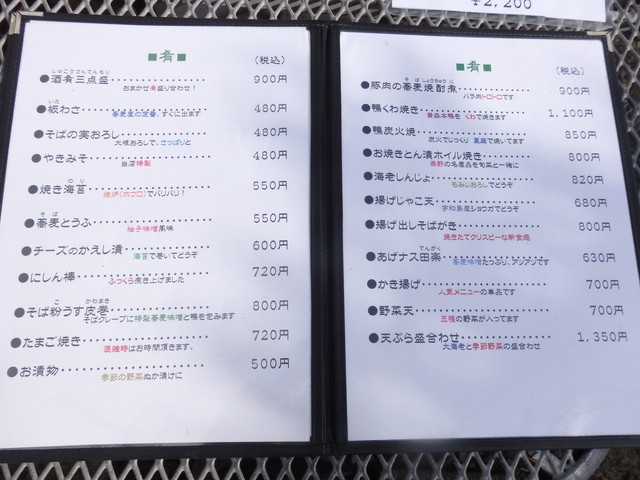 ¥2,200
■肴■
(税込)
しゅこうさんてんもり
●酒肴三点盛・・・・・・・・・・・・ 900円
おまかせ肴盛り合わせ!
いた
●板わさ・・・・・・・・・・・・・・・・・・ 480円
蕎麦屋の定番、すぐに出ます
●そばの実おろし・・・・・・・・・・・・ 480円
大根おろしで、さっぱりと
●やきみそ・・・・・・・・・・・・・・・・ 480円
当店特製
のり
●焼き海苔・・・・・・・・・・・・・・・・ 550円
焙炉(ホウロ)でパリパリ!
そば
●蕎麦とうふ・・・・・・・・・・・・・・ 550円
柚子味噌風味
●チーズのかえし漬・・・・・・・・・・ 600円
海苔で巻いてどうぞ
●にしん棒・・・・・・・・・・・・・・・・ 720円
ふっくら煮き上げました
こ かわまき
●そば粉うす皮巻・・・・・・・・・・・・ 800円
そばクレープに特製蕎麦味噌と鴨を包みます
●たまご焼き・・・・・・・・・・・・・・ 720円
混雑時はお時間頂きます。
●お漬物・・・・・・・・・・・・・・・・・・ 500円
季節の野菜ぬか漬けに
■肴■
(税込)
そばしょうちゅうに
●豚肉の蕎麦焼酎煮・・・・・・・・・・ 900円
バラ肉トロトロです
●鴨くわ焼き・・・・・・・・・・・・・・ 1,100円
青森本鴨を くわで焼きます
●鴨炭火焼・・・・・・・・・・・・・・・・ 850円
炭火でじっくり 藁蔵で焼いてます
●お焼きとん漬ホイル焼き・・・・・・ 800円
秦野の名産品を旬菜と一緒に
●海老しんじょ・・・・・・・・・・・・・・ 820円
もみじおろしでどうぞ
●揚げじゃこ天・・・・・・・・・・・・・・ 680円
宇和島産ショウガでどうぞ
●揚げ出しそばがき・・・・・・・・・・ 800円
挽きたてクリスピーな新食感
でんがく
●あげナス田楽・・・・・・・・・・・・・・ 630円
蕎麦味噌たっぷり、アツアツです
●かき揚げ・・・・・・・・・・・・・・・・ 700円
人気メニューの単品です
●野菜天・・・・・・・・・・・・・・・・・・ 700円
三種の野菜が入ってます
●天ぷら盛合わせ・・・・・・・・・・・・ 1,350円
大海老と季節野菜の盛合わせ